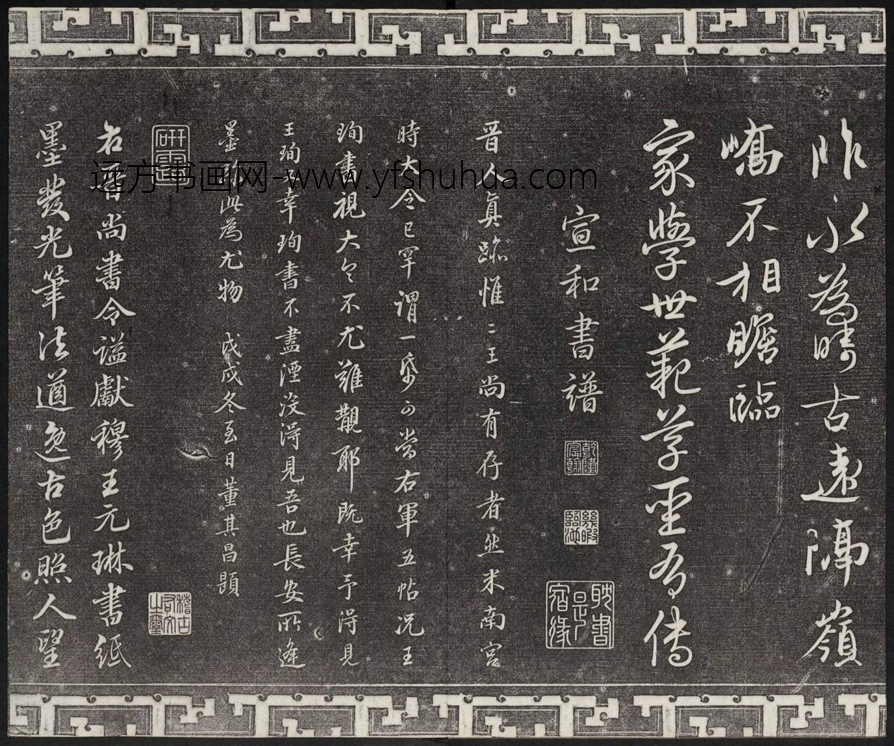 昨永為疇古遠隔嶺
嶠不相瞻臨
家學世範草聖有傳
宣和書譜
乾隆宸翰
幾暇臨池
晉人真蹟惟二王尚有存者然米南宮
時大令已罕謂一帋可當右軍五帖況王
珣書視大令不尤難覯耶既幸予得見
王珣又幸珣書不盡湮沒得見吾也長安所逢
墨跡此為尤物 戊戌冬至日董其昌題
研露
稽古右文之璽
右晉尚書令謚獻穆王元琳書紙
墨發光筆法遒逸古色照人望
远方书画网-www.yfshuhua.com